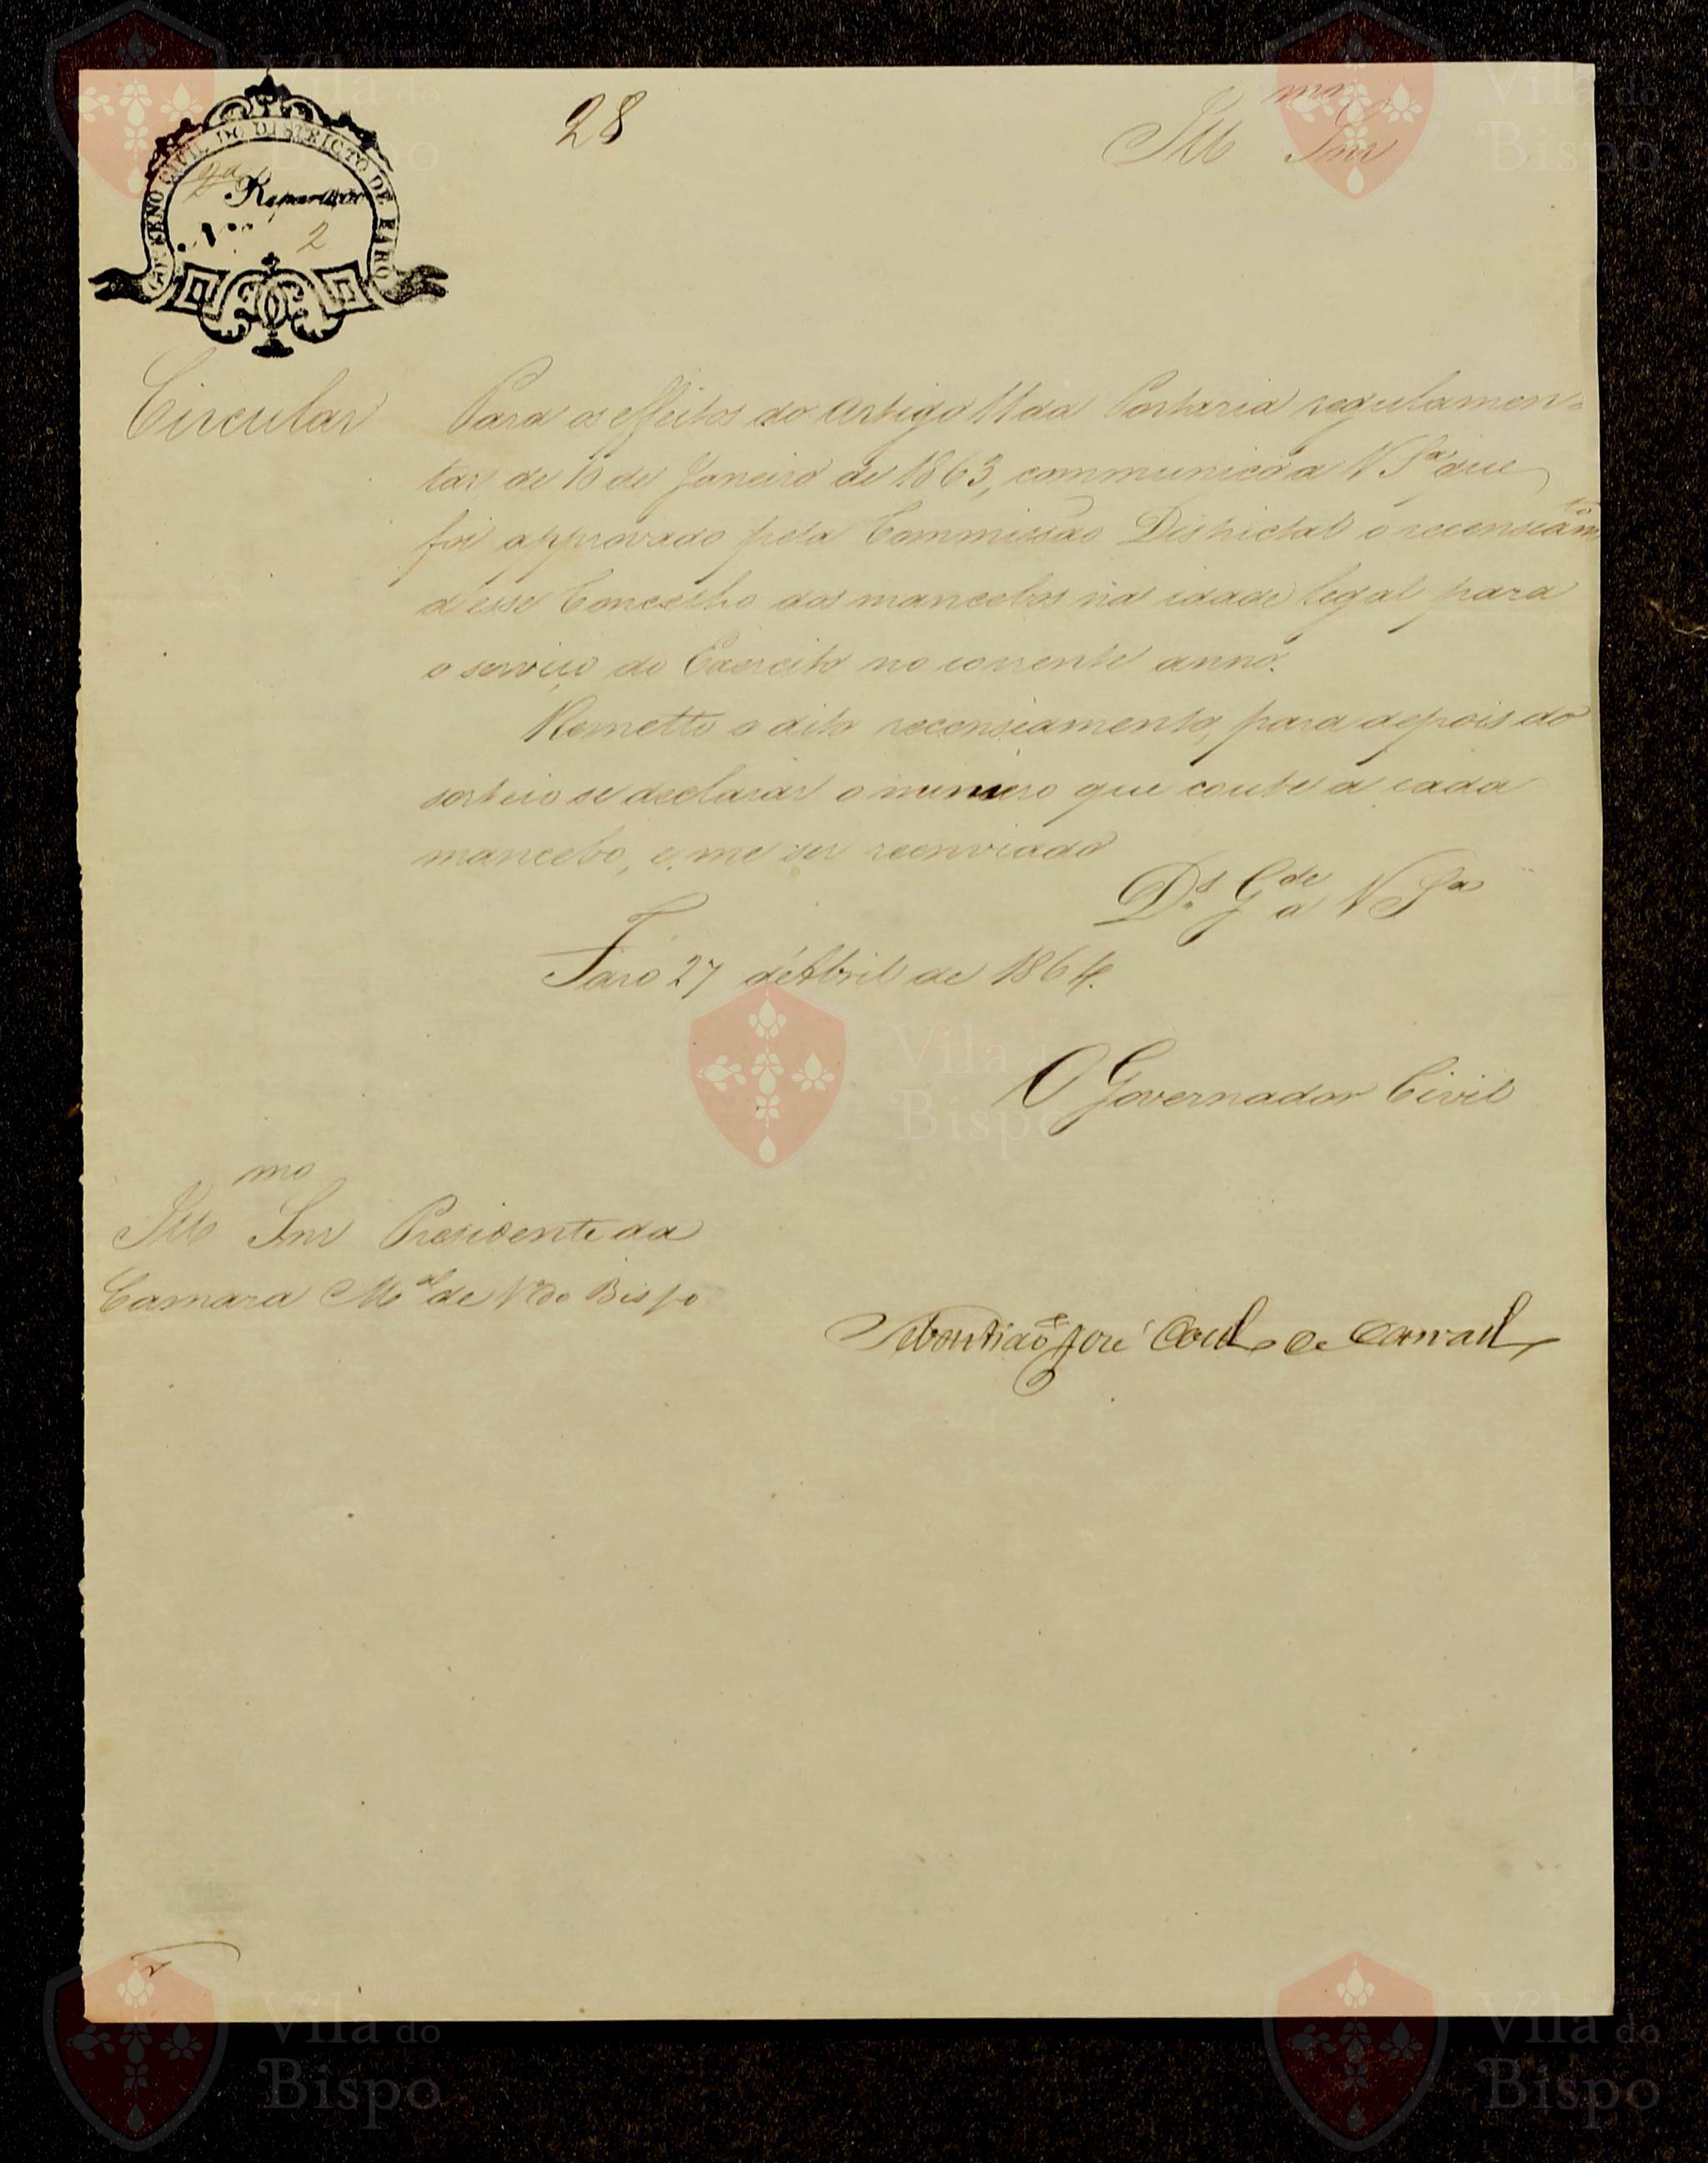 28
Illmo Snr
GOVERNO CIVIL DO DISTRICTO DE FARO
2ª Repartição
N.º 2
Circular
Para os effeitos do artigo 11 da Portaria regulamen-
tar de 10 de Janeiro de 1863, communico a V Sª que
foi approvado pela Commissão Districtal o recenseiamto
d'esse Concelho dos mancebos na idade legal para
o serviço do Exercito no corrente anno.
Remetto o dito recenseiamento, para depois do
sorteio se declarar o numero que coube a cada
mancebo, e me ser reenviado
Ds. Gde a V Sª
Faro 27 d'Abril de 1864.
O Governador Civil
Illmo Snr Presidente da
Camara Mal de Vª do Bispo
Sebastião José
Vila do
Bispo